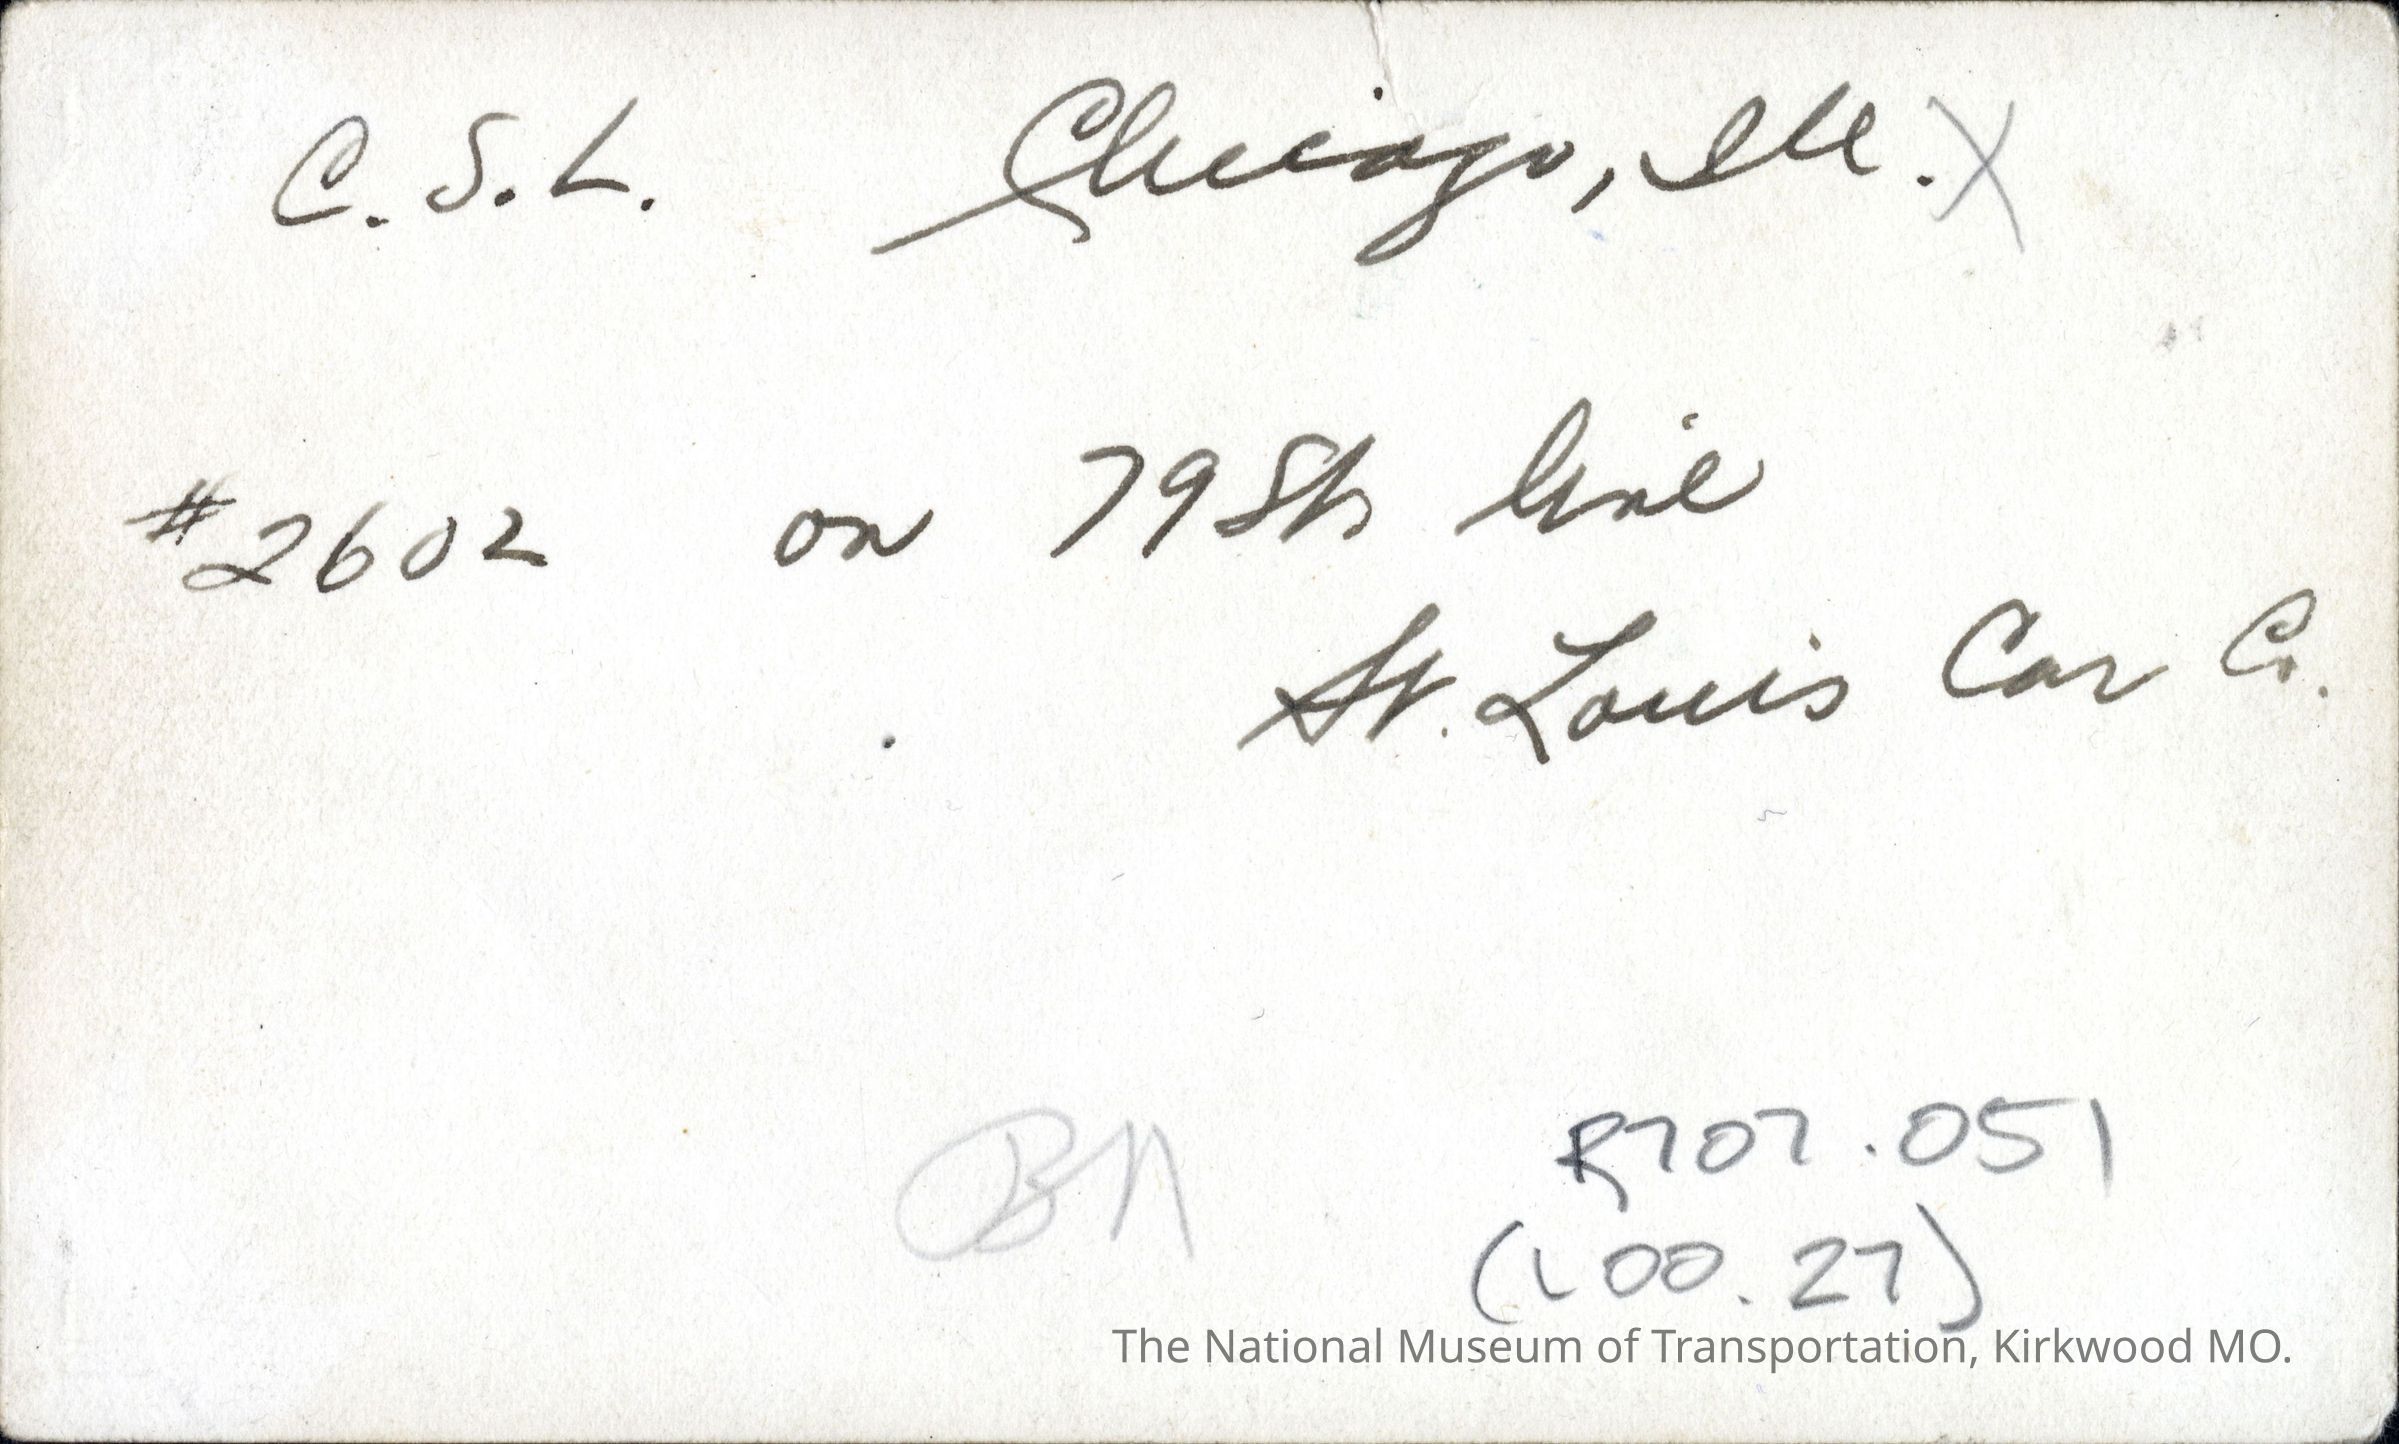 C. S. L. Chicago, Ill. X
#2602 on 79 St. line
St. Louis Car Co.
R707.051
(L00.27)
The National Museum of Transportation, Kirkwood MO.